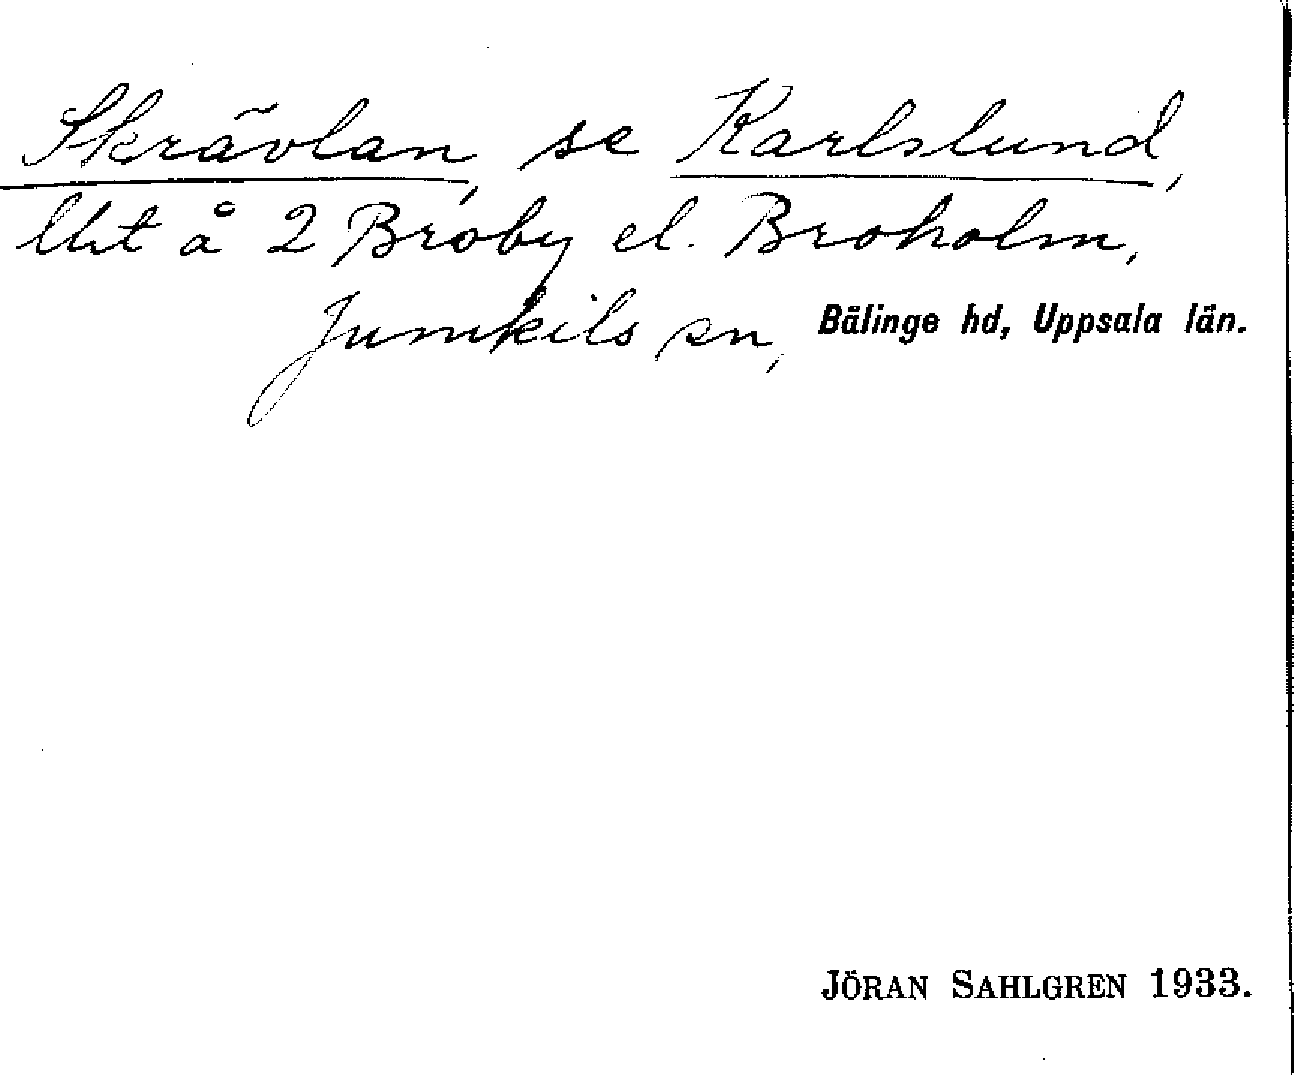 Skrävlan, se Karlslund,
lht å 2 Broby el. Broholm,
Jumkils sn, Bälinge hd, Uppsala län.
JÖRAN SAHLGREN 1933.